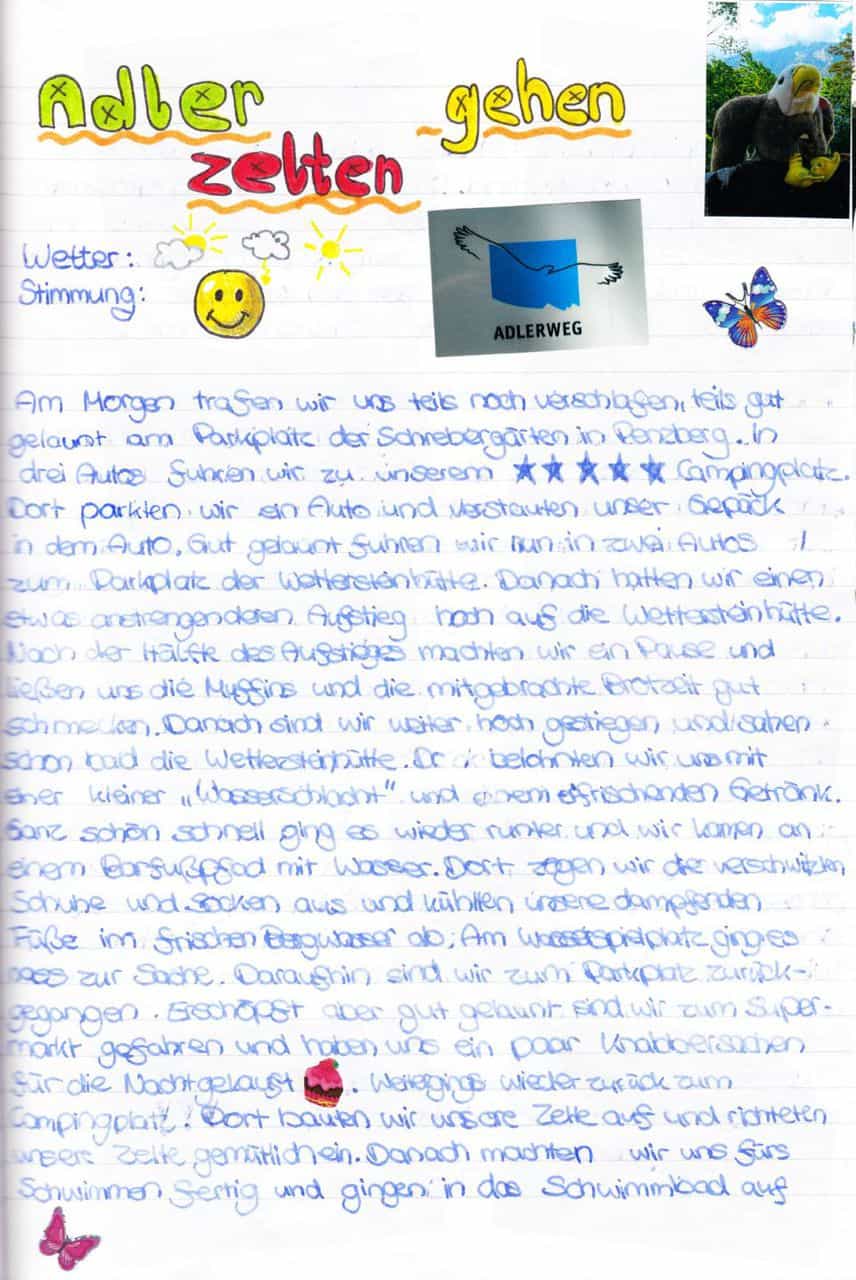 Adler gehen
zelten
Wetter:
Stimmung:
ADLERWEG
Am Morgen trafen wir uns teils noch verschlafen, teils gut
gelaunt am Parkplatz der Schrebergärten in Penzberg. In
drei Autos fuhren wir zu unserem ★★★★★ Campingplatz.
Dort parkten wir ein Auto und verstauten unser Gepäck
in dem Auto. Gut gelaunt fuhren wir nun in zwei Autos
zum Parkplatz der Wettersteinhütte. Danach hatten wir einen
etwas anstrengenderen Aufstieg hoch auf die Wettersteinhütte.
Nach der Hälfte des Aufstieges machten wir ein Pause und
ließen uns die Muffins und die mitgebrachte Brotzeit gut
schmecken. Danach sind wir weiter hoch gestiegen und sahen
schon bald die Wettersteinhütte. belohnten wir uns mit
einer kleiner „Wasserschlacht" und einem erfrischenden Getränk.
Ganz schön schnell ging es wieder runter und wir kamen an
einem Barfußpfad mit Wasser. Dort zogen wir die verschwitzten
Schuhe und Socken aus und kühlten unsere dampfenden
Füße im frischen Bergwasser ab. Am Wasserspielplatz ging es
nass zur Sache. Daraufhin sind wir zum Parkplatz zurück-
gegangen. Erschöpft aber gut gelaunt sind wir zum Super-
markt gefahren und haben uns ein paar Knabbersachen
für die Nacht gekauft. wieder zurück zum
Campingplatz. Dort bauten wir unsere Zelte auf und richteten
unsere Zelte gemütlich ein. Danach machten wir uns fürs
Schwimmen fertig und gingen in das Schwimmbad auf